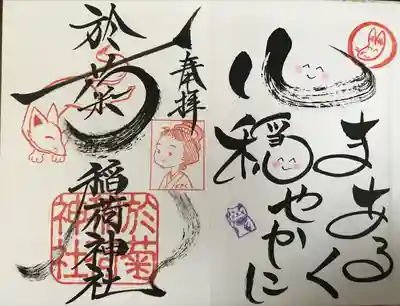 心
まあるく
稲やかに
奉拝
於菊稲荷神社
於菊
稲荷
神社